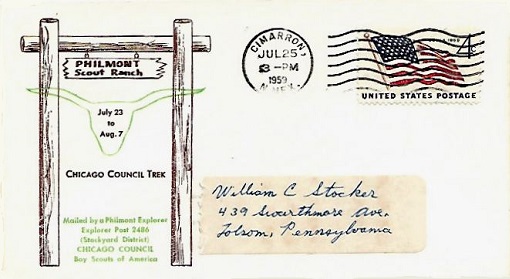 PHILMONT
Scout Ranch
July 23
to
Aug. 7
CHICAGO COUNCIL TREK
Mailed by a Philmont Explorer
Explorer Post 2486
(Stockyard District)
CHICAGO COUNCIL
Boy Scouts of America
CIMARRON
JUL 25
3 - PM
1959
N. MEX.
4¢
UNITED STATES POSTAGE
William C Stocker
439 Swarthmore Ave.
Folsom, Pennsylvania